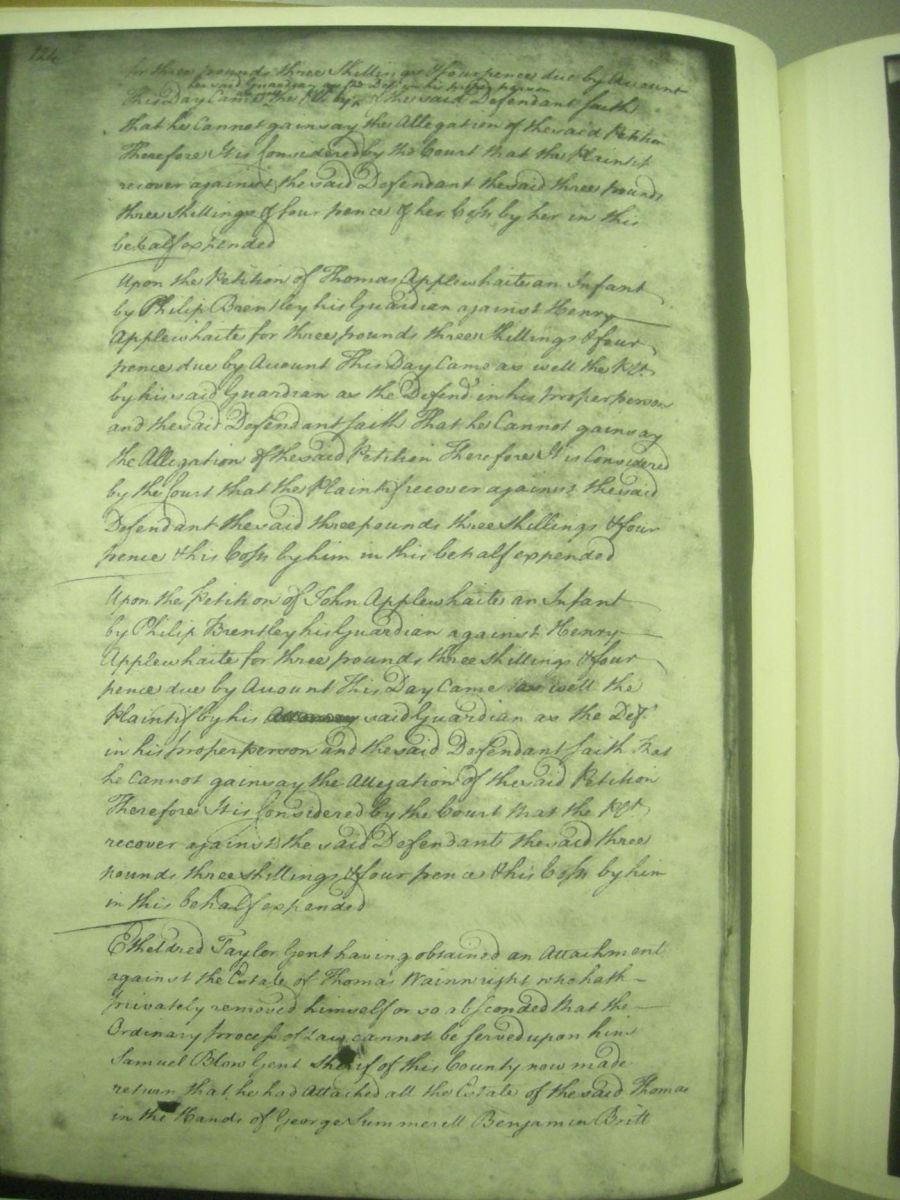 124
for three pounds three Shillings & four pence due by Account
her said Guardian as the Def. in his proper person
This Day Came the Plt. by & the said Defendant saith
that he Cannot gainsay the Allegation of the said Petition
Therefore It is Considered by the Court that the Plaintif
recover against the said Defendant the said three pounds
three shillings & four pence & her Costs by her in this
behalf expended
Upon the Petition of Thomas Applewhaite an Infant
by Philip Brentley his Guardian against Henry
Applewhaite for three pounds three Shillings & four
pence due by Acount This Day Came as well the Plt.
by his said Guardian as the Defend. in his proper person
and the said Defendant saith That he Cannot gainsay
the Allegation of the said Petition Therefore It is Considered
by the Court that the Plaintif recover against the said
Defendant the said three pounds three shillings & four
pence & his Costs by him in this behalf expended
Upon the Petition of John Applewhaite an Infant
by Philip Brentley his Guardian against Henry
Applewhaite for three pounds three shillings & four
pence due by Acount This Day Came as well the
Plaintif by his said Guardian as the Def.
in his proper person and the said Defendant saith that
he Cannot gainsay the Allegation of the said Petition
Therefore It is Considered by the Court that the Plt.
recover against the said Defendant the said three
pounds three shillings & four pence & his Costs by him
in this behalf expended
Etheldred Taylor Gent having obtained an Attachment
against the Estate of Thomas Wainwright who hath
privately removed himself or so absconded that the
Ordinary process of Law cannot be served upon him
Samuel Blow Gent Sherif of this County now made
return that he had Attached all the Estate of the said Thomas
in the Hands of George Summerell Benjamin Britt